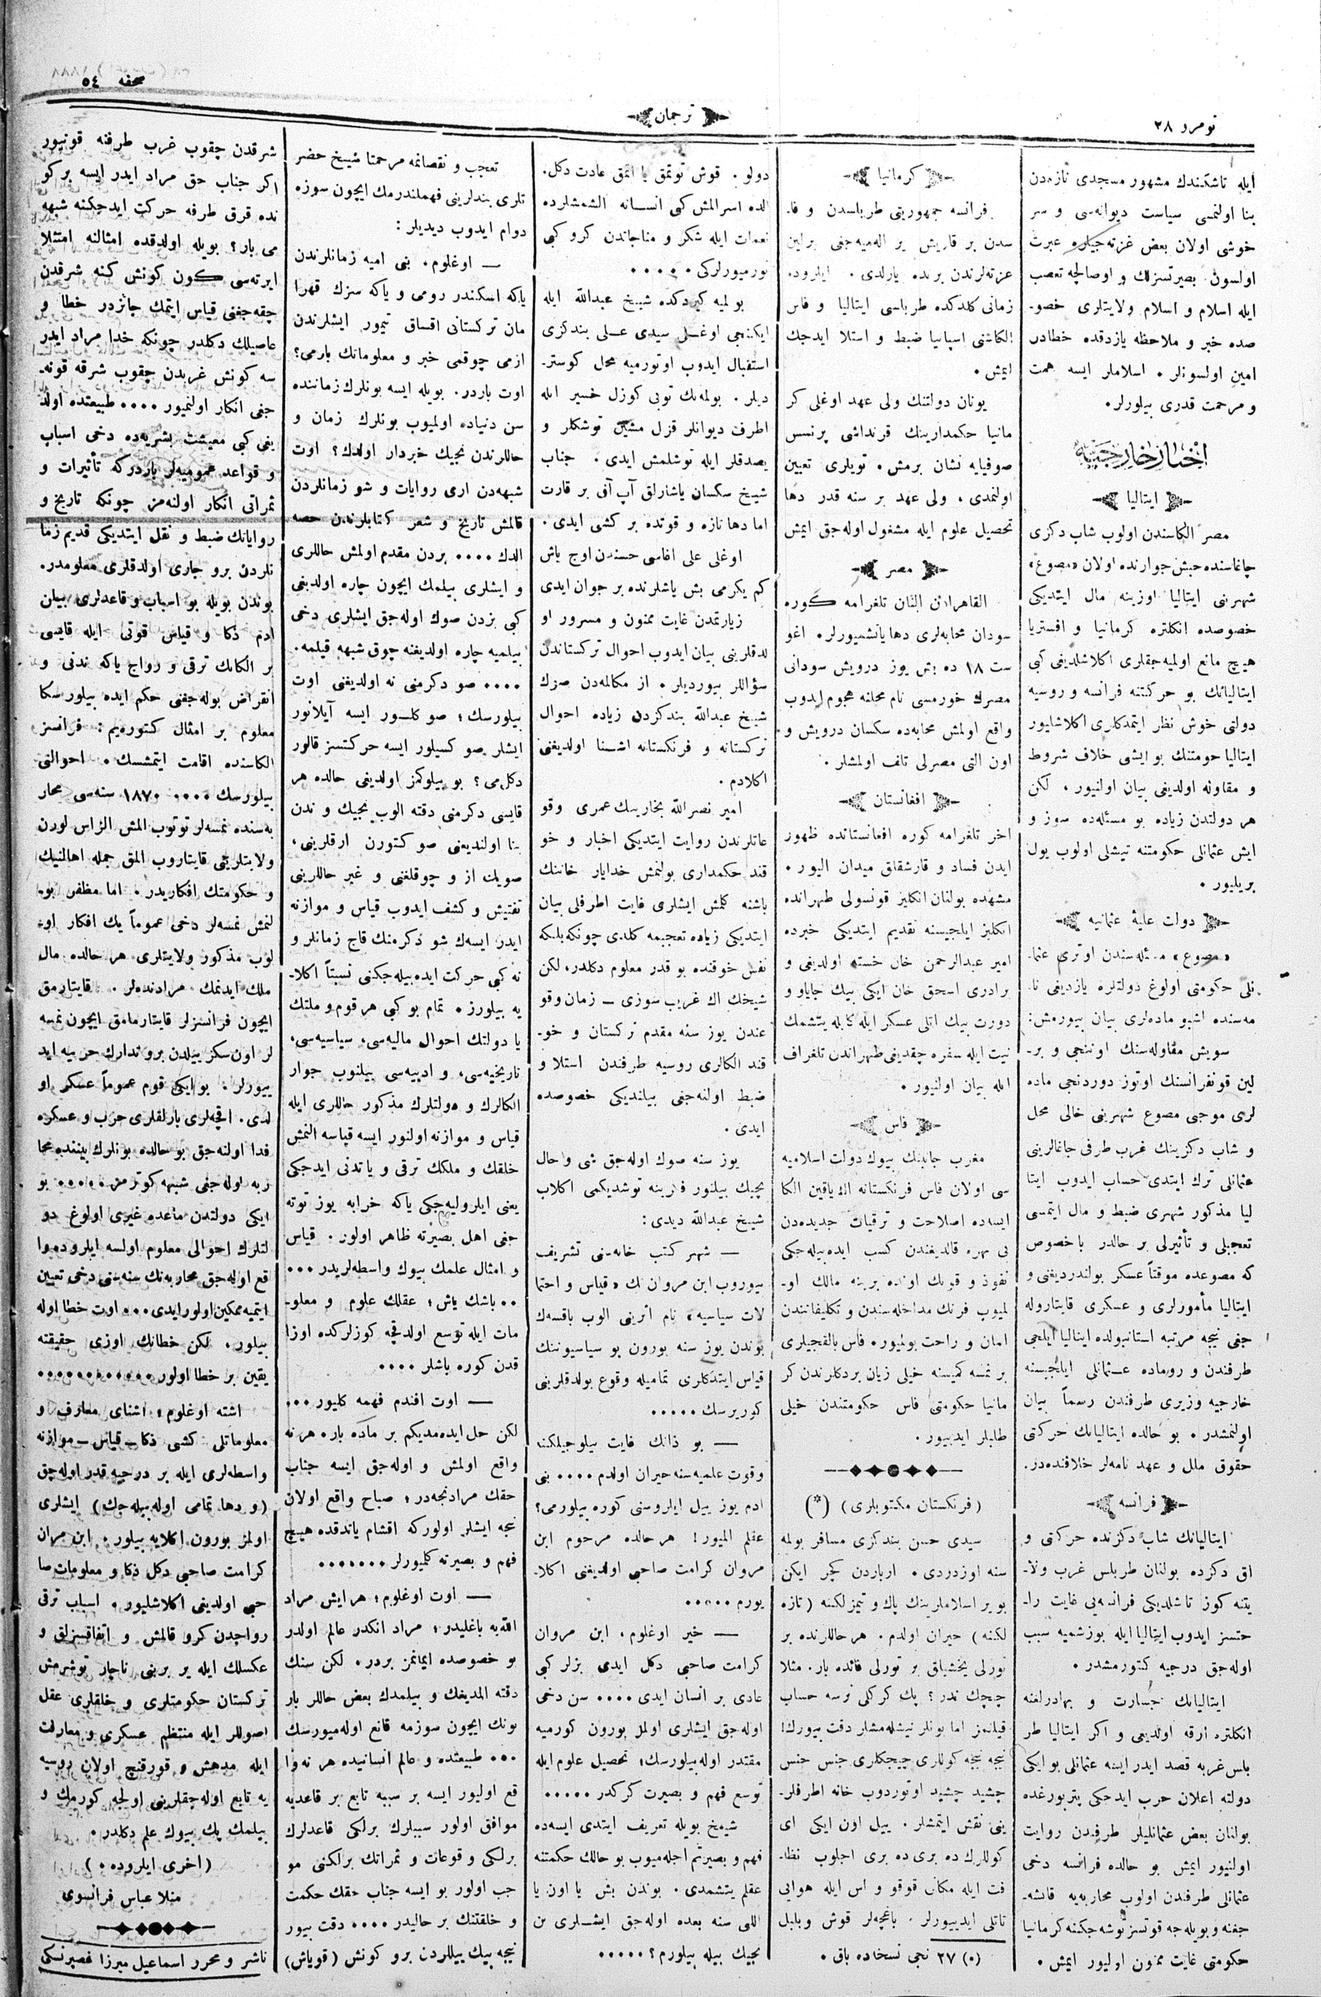 صحفه ٥٤
ترجمان
نومرو ٢٨
ايله تاشكندك مشهور مسجدى تازه‌دن
بنا اولنمسى سياست ديوانه‌سى و سر
خوشى اولان بعض غزته‌جيلره عبرت
اولسون. بصيرتسزلك و اوصالچه تعصب
ايله اسلام و اسلام ولايتلرى خصو-
صده خبر و ملاحظه يازدقده خطادن
امين اولسونلر. اسلاملر ايسه همت
و مرحمت قدرى بيلورلر.
اخبار خارجيه
ايتاليا
مصر الكاسندن اولوب شاپ دكزى
چاغاسنده حبش جوارنده اولان «مصوع»
شهرينى ايتاليا اوزينه مال ايتديكى
خصوصده انكلتره كرمانيا و افستريا
هيچ مانع اولميه‌جقلرى اكلاشلدينى كبى
ايتاليانك بو حركتنه فرانسه و روسيه
دولتى خوش نظر ايتمدكلرى اكلاشليور
ايتاليا حومتنك بو ايشى خلاف شروط
و مقاوله اولديغى بيان اولنيور. لكن
هر دولتدن زياده بو مسئله‌ده سوز و
ايش عثمانلى حكومتنه تيشلى اولوب يول
بريليور.
دولت عليۀ عثمانيه
«مصوع» مسئله‌سندن اوترى عثما-
نلى حكومتى اولوغ دولتلره يازدينى نا-
مه‌سنده اشبو ماده‌لرى بيان بيورمش:
سويش مقاوله‌سنك اوننجى و بر-
لين قونفرانسنك اوتوز دوردنجى ماده
لرى موجبى مصوع شهرينى خالى محل
و شاپ دكزينك غرب طرفى جاغالرينى
عثمانلى ترك ايتدى حساب ايدوب ايتا
ليا مذكور شهرى ضبط و مال ايتمسى
تعجبلى و تأثيرلى بر حالدر باخصوص
كه مصوعده موقتاً عسكر بولندرديغى و
ايتاليا مأمورلرى و عسكرى قايتاروله
جغى نيجه مرتبه استانبولده ايتاليا ايلچى
طرفندن و روماده عثمانلى ايلچيسنه
خارجيه وزيرى طرفندن رسماً بيان
اولنمشدر. بو حالده ايتاليانك حركتى
حقوق ملل و عهد نامه‌لر خلافنده‌در.
فرانسه
ايتاليانك شاپ دكزنده حركتى و
اق دكزده بولنان طربلس غرب ولا-
يتنه كوز تاشلديكى فرانسه‌يى غايت را-
حتسز ايدوب ايتاليا ايله بوزشميه سبب
اوله‌جق درجيه كتورمشدر.
ايتاليانك جسارت و بهادرلغنه
انكلتره ارقه اولديغى و اكر ايتاليا طر
بلس غربه قصد ايدر ايسه عثمانلى بو ايكى
دولته اعلان حرب ايدجكى پتربورغده
بولنان بعض عثمانليلر طرفندن روايت
اولنيور ايمش بو حالده فرانسه دخى
عثمانلى طرفندن اولوب محاربه‌يه قاتشه-
جغنه و بويله‌جه قوتسزلوشه جكنه كرمانيا
حكومتى غايت ممنون اوليور ايمش.
كرمانيا
فرانسه جمهوريتى طربلسدن و فا-
سدن بر قاريش ير اله‌ميه‌جغى برلين
غزته‌لرندن برنده يازلدى. ايلروده
زمانى كلدكده طربلسى ايتاليا و فاس
الكاسنى اسپانيا ضبط و استلا ايدجك
ايمش.
يونان دولتنك ولى عهد اوغلى كر
مانيا حكمدارينك قرنداشى پرنسس
صوفيايه نشان برمش. تويلرى تعيين
اولنمدى. ولى عهد بر سنه قدر دها
تحصيل علوم ايله مشغول اوله‌جق ايمش
مصر
القاهرادن النان تلغرامه كوره
سودان محابه‌لرى دها يانشميورلر. اغو
ست ١٨ ده بش يوز درويش سودانى
مصرك خورمسى نام محلنه هجوم ايدوب
واقع اولمش محابه‌ده سكسان درويش و
اون التى مصرلى تلف اولمشلر.
افغانستان
اخر تلغرامه كوره افغانستانده ظهور
ايدن فساد و قارشقلق ميدان اليور.
مشهده بولنان انكليز قونسولى طهرانده
انكليز ايلچيسنه تقديم ايتديكى خبرده
امير عبدالرحمن خان خسته اولديغى و
برادرى اسحق خان ايكى بيك جاياو و
دورت بيك اتلى عسكر ايله كابله يتشمك
نيت ايله سفره چقديغى طهراندن تلغراف
ايله بيان اولنيور.
فاس
مغرب جانبنك بيوك دولت اسلاميه
سى اولان فاس فرنكستانه الك ياقين الكا
ايسه‌ده اصلاحت و ترقيات جديده‌دن
بى بهره قالديغندن كسب ايده‌بيله‌جكى
نفوذ و قوتك اونده برينه مالك او-
لميوب فرنك مداخله‌سندن و تكليفاتندن
امان و راحت بولميور. فاس بالقجيلرى
بر نمسه كميسنه خيلى زيان بردكلرندن كر
مانيا حكومتى فاس حكومتندن خيلى
طلبلر ايدييور.
(فرنكستان مكتوبلرى) (*)
سيدى حسن بندكزى مسافر بولمه
سنه اوزدردى. اربابدن كچر ايكن
بو ير اسلاملرينك پاك و تميزلكنه (تازه
لكنه) حيران اولدم. هر حاللرنده بر
تورلى يخشيلق بر تورلى فائده بار. مثلا
چچك ندر؟ پك كركلى نرسه حساب
قيلنمز اما بونلر نيشله‌مشلر دقت بيورك!
نيجه نيجه كوللرى چيچكلرى جنس جنس
چشيد چشيد اوتوردوب خانه اطرفلر-
ينى نقش ايتمشلر. ييل اون ايكى اى
كوللرك ده برى ده برى اچلوب نظا-
فت ايله مكانى قوقو و اس ايله هوايى
تاتلى ايدييورلر. باغچه‌لر قوش و بلبل
(*) ٢٧ نجى نسخه‌ده باق.
دولو. قوش توتمق يا اتمق عادت دكل.
الده اسرالمش كبى انسانه الشمشلرده
نغمات ايله شكر و مناجاتدن كرو كبى
تورميورلركى.....
بولميه كيردكده شيخ عبدالله ايله
ايكنجى اوغلى سيدى على بندكزى
استقبال ايدوب اوتورميه محل كوستر-
ديلر. بولمه‌نك توبى كوزل خسير ايله
اطرف ديوانلر قزل مشين توشكلر و
يصدقلر ايله توشلمش ايدى. جناب
شيخ سكسان ياشارلق آپ آق بر قارت
اما دها تازه و قوتده بر كشى ايدى.
اوغلى على افاسى حسندن اوچ ياش
كم يكرمى بش ياشلرنده بر جوان ايدى
زيارتمدن غايت ممنون و مسرور او
لدقلرينى بيان ايدوب احوال تركستاندن
سؤاللر بيورديلر. از مكالمه‌دن صزك
شيخ عبدالله بندكزدن زياده احوال
تركستانه و فرنكستانه اشنا اولديغنى
اكلادم.
امير نصرالله بخارينك عمرى وقو
عاتلرندن روايت ايتديكى اخبار و خو
قند حكمدارى بولنمش خدايار خاننك
باشنه كلمش ايشلرى غايت اطرفلى بيان
ايتديكى زياده تعجيمه كلدى چونكه بلكه
نفس خوقنده بو قدر معلوم دكلدر. لكن
شيخك اك غريب سوزى — زمان وقو
عندن يوز سنه مقدم تركستان و خو-
قند الكالرى روسيه طرفندن استلا و
ضبط اوله‌جغى بيلنديكى خصوصده
ايدى.
يوز سنه صوك اوله‌جق شى و احال
نجيك بيلنور فكرينه توشديكمى اكلاب
شيخ عبدالله ديدى:
— شهر كتب خانه‌سنى تشريف
بيوروب ابن مروان‌نك «قياس و احتما
لات سياسيه» نام اثرينى الوب باقسه‌ك
بوندن يوز سنه بورون بو سياسيوننك
قياس ايتدكلرى تماميله وقوع بولدقلرينى
كوريرسك.....
— بو ذاتك غايت بيلوجيلكنه
وقوت علميه‌سنه حيران اولدم.... بنى
ادم يوز ييل ايلروسنى كوره بيلورمى؟
عقلم الميور! هر حالده مرحوم ابن
مروان كرامت صاحبى اولديغنى اكلا-
يورم.....
— خير اوغلوم. ابن مروان
كرامت صاحبى دكل ايدى بزلر كبى
عادى بر انسان ايدى.... سن دخى
اوله‌جق ايشلرى اولمز بورون كورميه
مقتدر اوله‌بيلورسك؛ تحصيل علوم ايله
توسع فهم و بصيرت كركدر.....
شيخ بويله تعريف ايتدى ايسه‌ده
فهم و بصيرتم اچله‌ميوب بو حالك حكمتنه
عقلم يتشمدى. بوندن بش يا اون يا
اللى سنه بعده اوله‌جق ايشلرى بن
نجيك بيله بيلورم؟.....
تعجب و نقصانمه مرحمتا شيخ حضر
تلرى بندلرينى فهملندرمك ايچون سوزه
دوام ايدوب ديديلر:
— اوغلوم. بنى اميه زمانلرندن
ياكه اسكندر رومى و ياكه سزك قهرا
مان تركستانى اقساق تيمور ايشلرندن
ازمى چوقمى خبر و معلوماتك بارمى؟
اوت باردر. بويله ايسه بونلرك زماننده
سن دنياده اولميوب بونلرك زمان و
حاللرندن نجيك خبردار اولدك؟ اوت
شبهه‌دن ارى روايات و شو زمانلردن
قالمش تاريخ و شعر كتابلرندن حصه
الدك.... بردن مقدم اولمش حاللرى
و ايشلرى بيلمك ايچون چاره اولديغى
كبى بزدن صوك اوله‌جق ايشلرى دخى
بيلميه چاره اولديغنه چوق شبهه قيلمه.
.... صو دكرمنى نه اولديغنى اوت
بيلورسك؛ صو كلسور ايسه آيلانور
ايشلر. صو كسيلور ايسه حركتسز قالور
دكل‌مى؟ بو بيلوكمز اولديغى حالده هر
قايسى دكرمنى دقته الوب نجيك و ندن
بنا اولنديغنى صو كتورن ارقلرينى،
صوينك از و چوقلغنى و غير حاللرينى
تفتيش و كشف ايدوب قياس و موازنه
ايدر ايسه‌ك شو دكرمنك قاچ زمانلر و
نه كبى حركت ايده‌بيله‌جكنى نسبتاً اكلا-
يه بيلورز. تمام بو كبى هر قوم و ملتك
يا دولتك احوال ماليه‌سى، سياسيه‌سى،
تاريخيه‌سى، و ادبيه‌سى بيلنوب جوار
الكالرك و دولتلرك مذكور حاللرى ايله
قياس و موازنه اولنور ايسه قياسه النمش
خلقك و ملكك ترقى و يا تدنى ايدجكى
يعنى ايلروليه‌جكى ياكه خرابه يوز توته
جغى اهل بصيرته ظاهر اولور. قياس
و امثال علمك بيوك واسطه‌لريدر...
.. باشك ياش؛ عقلك علوم و معلو-
مات ايله توسع اولدقچه كوزلركده اوزا
قدن كوره باشلر....
— اوت افندم فهمه كليور...
لكن حل ايده‌مديكم بر ماده بار. هر نه
واقع اولمش و اوله‌جق ايسه جناب
حقك مرادنجه‌در؛ صباح واقع اولان
نجه ايشلر اولوركه اقشام ياتدقده هيچ
فهم و بصيرته كلميورلر.......
— اوت اوغلوم؛ هر ايش مراد
الله‌يه باغليدر؛ مراد انكدر عالم اولدر
بو خصوصده ايمانمز بردر. لكن سنك
دقته المديغك و بيلمدك بعض حاللر بار
بونك ايچون سوزمه قانع اوله‌ميورسك
... طبيعتده و عالم انسانيده هر نه وا
قع اوليور ايسه بر سببه تابع بر قاعديه
موافق اولور سببلرك برلكى قاعدلرك
برلكى و قوعات و ثمراتك برلكنى مو
جب اولور بو ايسه جناب حقك حكمت
و خلقتنك بر حاليدر.... دقت بيور
نيجه بيك ييللردن برو كونش (قوياش)
شرقدن چقوب غرب طرفنه قونيور
اكر جناب حق مراد ايدر ايسه بر كو
نده قرق طرفه حركت ايدجكنه شبهه
مى بار؟ بويله اولدقده امثالنه امتثلا
ايرته‌سى كون كونش كنه شرقدن
چقه‌جغنى قياس ايتمك جائزدر خطا و
عاصيلك دكلدر چونكه خدا مراد ايدر
سه كونش غربدن چقوب شرقه قونه-
جغى انكار اولنميور.... طبيعتده اولد
يغى كبى معيشت بشريه‌ده دخى اسباب
و قواعد عموميه‌لر باردركه تأثيرات و
ثمراتى انكار اولنه‌مز چونكه تاريخ و
رواياتك ضبط و نقل ايتديكى قديم زما
نلردن برو جارى اولدقلرى معلومدر.
بوندن بويله بو اسباب و قاعدلرى بيلن
ادم ذكا و قياس قوتى ايله قايسى
بر الكانك ترقى و رواج ياكه تدنى و
انقراض بوله‌جغنى حكم ايده بيلورسكا
معلوم بر امثال كتوره‌يم: فرانسز
الكاسنده اقامت ايتمشسك. احوالنى
بيلورسك.... ١٨٧٠ سنه‌سى محار
به‌سنده نمسه‌لر توتوب المش الزاس لورن
ولايتلرينى قايتاروب المق جمله اهالينك
و حكومتك افكاريدر. اما مظفر بو-
لنمش نمسه‌لر دخى عموماً يك افكار او-
لوب مذكور ولايتلرى هر حالده مال
ملك ايدنمك مرادنده‌لر. قايتارمق
ايچون فرانسزلر قايتارمامق ايچون نمسه
لر اون سكز ييلدن برو تدارك حربيه ايد
ييورلر. بو ايكى قوم عموماً عسكر او
لدى. اقچه‌لرى بارلقلرى حرب و عسكره
فدا اولنه‌جق بو حالده بونلرك بيننده محا
ربه اوله‌جغى شبهه كوترمز..... بو
ايكى دولتدن ماعده غيرى اولوغ دو
لتلرك احوالى معلوم اولسه ايلروده وا
قع اوله‌جق محاربه‌نك سنه‌سنى دخى تعيين
ايتميه ممكين اولور ايدى... اوت خطا اوله
بيلور. لكن خطانك اوزى حقيقته
يقين بر خطا اولور..........
اشته اوغلوم؛ اشناى معارف و
معلوماتلى كشى ذكا – قياس – موازنه
واسطه‌لرى ايله بر درجيه قدر اوله‌جق
(و دها تمامى اوله‌بيله‌جك) ايشلرى
اولمز بورون اكلايه بيلور. ابن مروان
كرامت صاحبى دكل ذكا و معلومات صا
حبى اولديغى اكلاشليور. اسباب ترقى
رواجدن كرو قالمش و اتفاقسزلق و
عكسلك ايله بر برينى ناچار توشرمش
تركستان حكومتلرى و خلقلرى عقل
اصوللر ايله منتظم عسكرى و معارفت
ايله مدهش و قورقنچ اولان روسيه
يه تابع اوله‌جقلرينى اولجه كورمك و
بيلمك پك بيوك علم دكلدر.
(اخرى ايلروده.)
منلا عباس فرانسوى
ناشر و محرر اسماعيل ميرزا غصپرنسكى